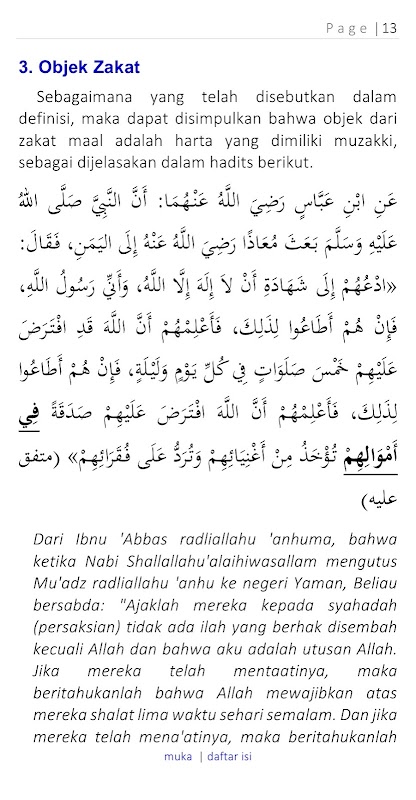 Page |13
3. Objek Zakat
Sebagaimana yang telah disebutkan dalam
definisi, maka dapat disimpulkan bahwa objek dari
zakat maal adalah harta yang dimiliki muzakki,
sebagai dijelasakan dalam hadits berikut.
عَنِ ابْنِ عَبَّاسٍ رَضِيَ اللَّهُ عَنْهُمَا: أَنَّ النَّبِيَّ صَلَّى اللهُ
عَلَيْهِ وَسَلَّمَ بَعَثَ مُعَاذًا رَضِيَ اللَّهُ عَنْهُ إِلَى اليَمَنِ، فَقَالَ:
«ادْعُهُمْ إِلَى شَهَادَةِ أَنْ لاَ إِلَهَ إِلَّا اللَّهُ، وَأَنِّي رَسُولُ اللَّهِ،
فَإِنْ هُمْ أَطَاعُوا لِذَلِكَ، فَأَعْلِمْهُمْ أَنَّ اللَّهَ قَدِ افْتَرَضَ
عَلَيْهِمْ خَمْسَ صَلَوَاتٍ فِي كُلِّ يَوْمٍ وَلَيْلَةٍ، فَإِنْ هُمْ أَطَاعُوا
لِذَلِكَ، فَأَعْلِمْهُمْ أَنَّ اللَّهَ افْتَرَضَ عَلَيْهِمْ صَدَقَةً فِي
أَمْوَالِهِمْ تُؤْخَذُ مِنْ أَغْنِيَائِهِمْ وَتُرَدُّ عَلَى فُقَرَائِهِمْ» (متفق
عليه)
Dari Ibnu 'Abbas radliallahu 'anhuma, bahwa
ketika Nabi Shallallahu'alaihiwasallam mengutus
Mu'adz radliallahu 'anhu ke negeri Yaman, Beliau
bersabda: "Ajaklah mereka kepada syahadah
(persaksian) tidak ada ilah yang berhak disembah
kecuali Allah dan bahwa aku adalah utusan Allah.
Jika mereka telah mentaatinya, maka
beritahukanlah bahwa Allah mewajibkan atas
mereka shalat lima waktu sehari semalam. Dan jika
mereka telah mena'atinya, maka beritahukanlah
muka | daftar isi